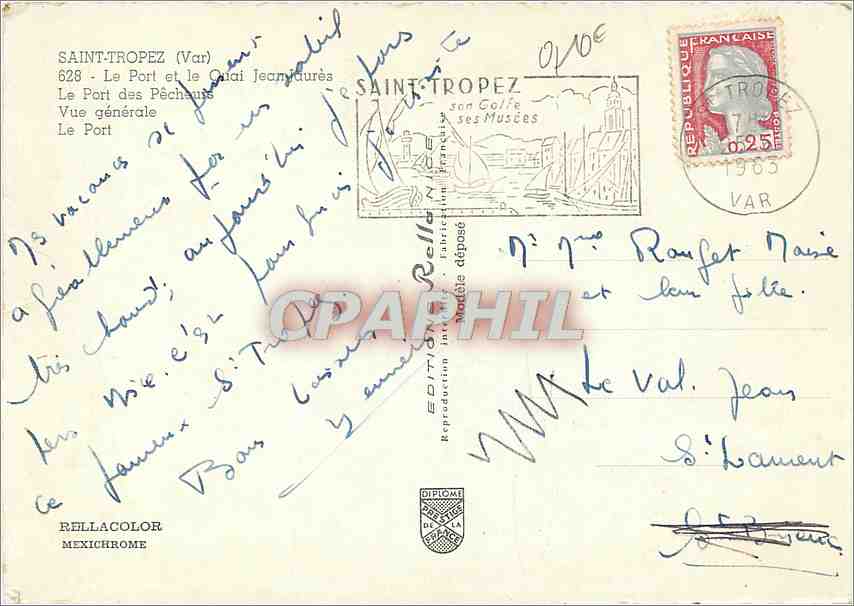 SAINT-TROPEZ (Var)
628 - Le Port et le Quai Jean-Jaurès
Le Port des Pêcheurs
Vue générale
Le Port
0,10€
SAINT·TROPEZ
son Golfe
ses Musées
REPUBLIQUE FRANÇAISE
POSTES
0,25
ST TROPEZ
1963
VAR
vacances se passent
agréablement
très chaud, aujourd'hui je pars
vers Nice. c'est
ce fameux St Tropez
Bons baisers
EDITIONS Rella NICE
Reproduction interdite - Fabrication Française
Modèle déposé
Mr Mme Rouget
et leur fille.
Le Val. Jean
St Laurent
DIPLOME
PRESTIGE
DE LA
FRANCE
RELLACOLOR
MEXICHROME
CPARPHIL